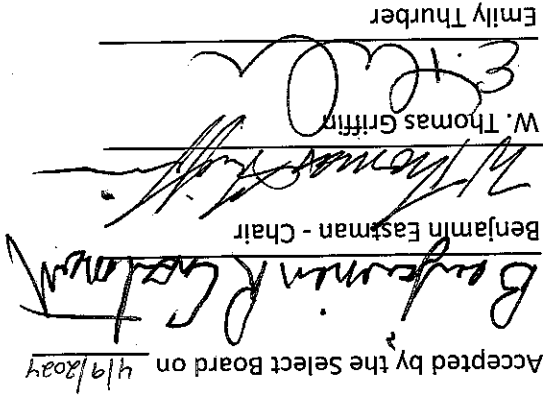 Accepted by the Select Board on 4/9/2024
Benjamin R Eastman
Benjamin Eastman - Chair
W Thomas Griffin
W. Thomas Griffin
Emily Thurber